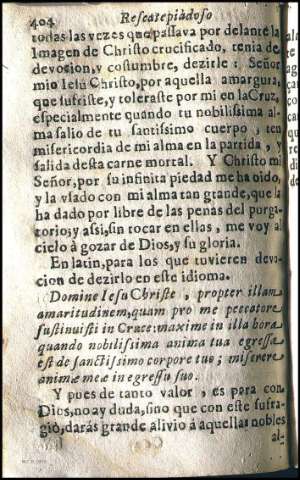 404 Rescatepiàdoso
todas las vezes que passava por delante la
Imagen de Christo crucificado, tenia de
devocion, y costumbre, dezirle: Señor
mio Iesu Christo, por aquella amargura,
que sufriste, y toleraste por mi en la Cruz,
especialmente quando tu nobilissima al-
ma salio de tu santissimo cuerpo, ten
misericordia de mi alma en la partida, y
salida desta carne mortal. Y Christo mi
Señor, por su infinita piedad me ha oido,
y la vsado con mi alma tan grande, que la
ha dado por libre de las penas del purga-
torio, y assi, sin tocar en ellas, me voy al
cielo à gozar de Dios, y su gloria.
En latin, para los que tuvieren devo-
cion de dezirlo en este idioma.
Domine Iesu Christe, propter illam
amaritudinem, quam pro me peccatore
sustinuisti in Cruce: maxime in illa hora
quando nobilissima anima tua egressa
est de sanctissimo corpore tuo; miserere
animæ meæ in egressu suo.
Y pues de tanto valor, es para con
Dios, no ay duda, sino que con este sufra-
gio, daràs grande alivio à aquellas nobles
al-